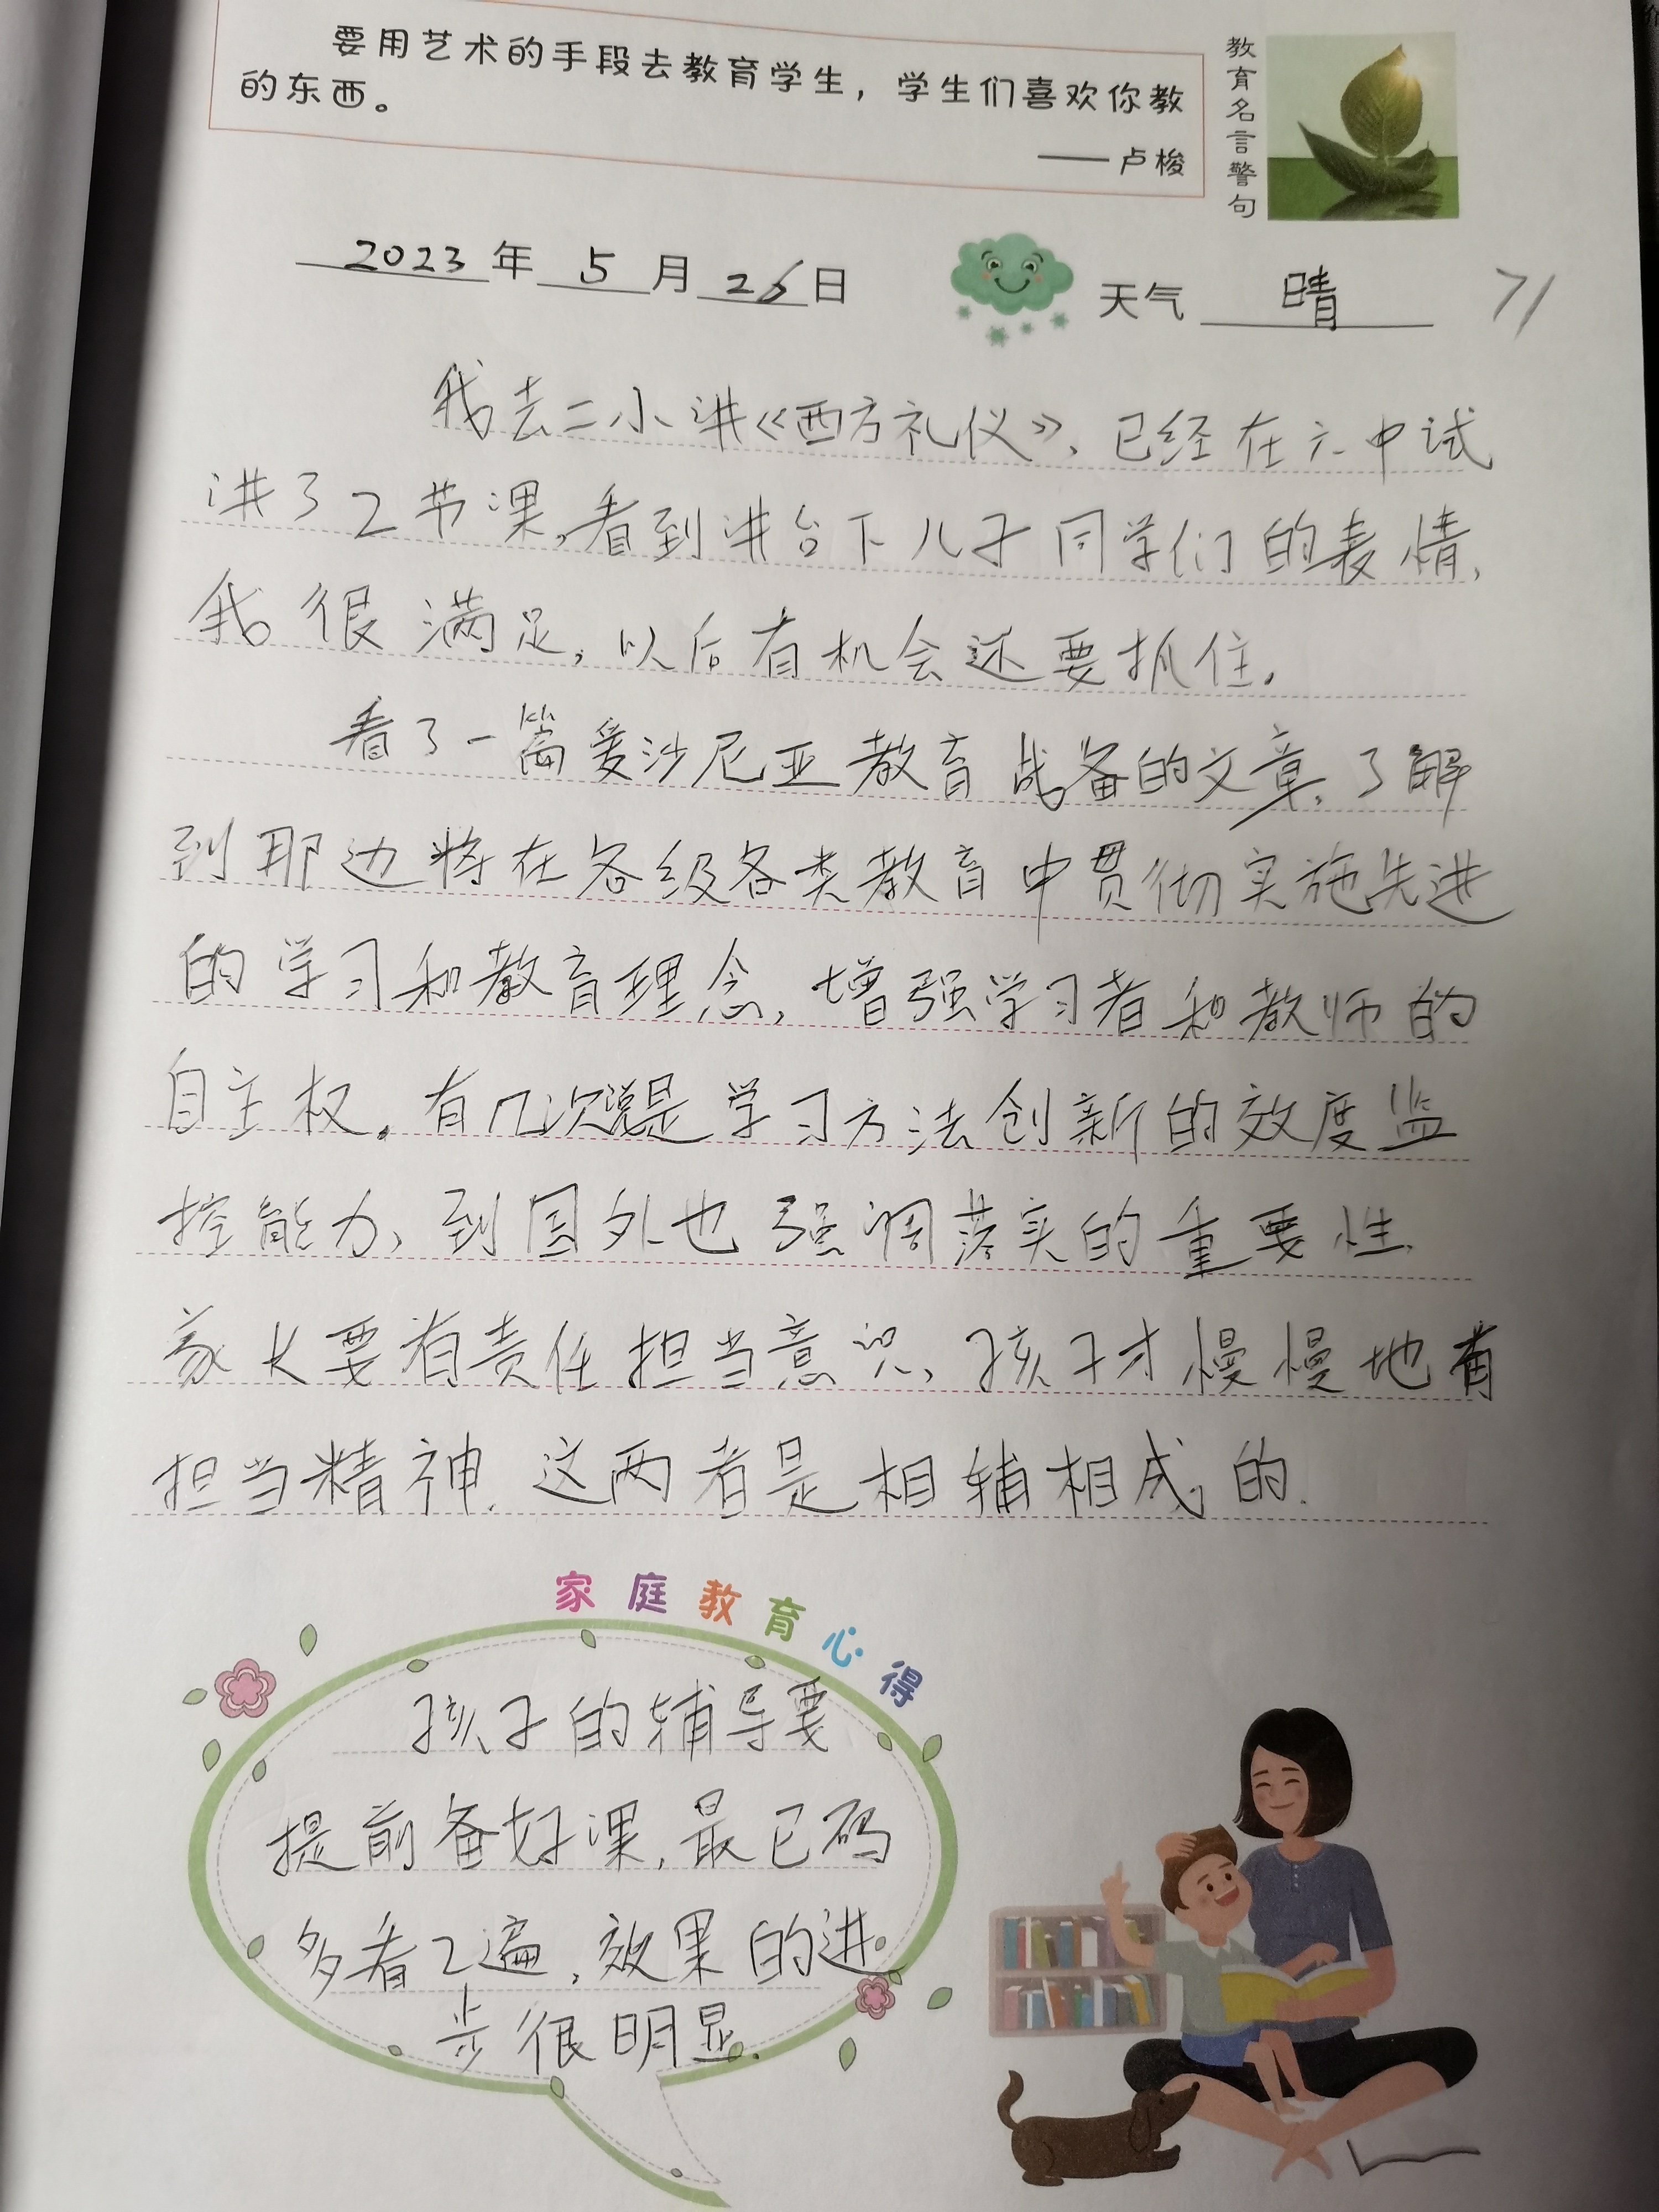 要用艺术的手段去教育学生，学生们喜欢你教
的东西。
——卢梭
教育名言警句
2023年5月26日
天气 晴
71
我去二小讲《西方礼仪》，已经在六中试
讲了2节课，看到讲台下儿子同学们的表情，
我很满足，以后有机会还要抓住。
看了一篇爱沙尼亚教育战备的文章，了解
到那边将在各级各类教育中贯彻实施先进
的学习和教育理念，增强学习者和教师的
自主权。有几次说是学习方法创新的效度监
控能力，到国外也强调落实的重要性，
家长要有责任担当意识，孩子才慢慢地有
担当精神。这两者是相辅相成的。
家庭教育心得
孩子的辅导要
提前备好课，最已码
多看2遍，效果的进
步很明显。